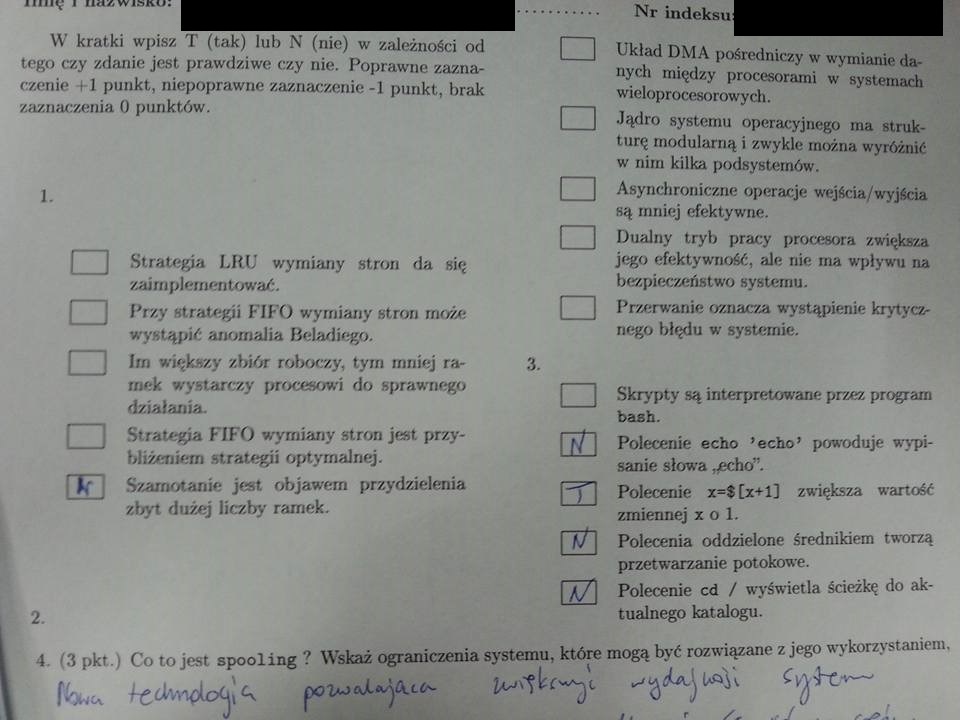 Imię i nazwisko: ............ Nr indeksu:
W kratki wpisz T (tak) lub N (nie) w zależności od
tego czy zdanie jest prawdziwe czy nie. Poprawne zazna-
czenie +1 punkt, niepoprawne zaznaczenie -1 punkt, brak
zaznaczenia 0 punktów.
1.
Strategia LRU wymiany stron da się
zaimplementować.
Przy strategii FIFO wymiany stron może
wystąpić anomalia Beladiego.
Im większy zbiór roboczy, tym mniej ra-
mek wystarczy procesowi do sprawnego
działania.
Strategia FIFO wymiany stron jest przy-
bliżeniem strategii optymalnej.
N Szamotanie jest objawem przydzielenia
zbyt dużej liczby ramek.
2.
Układ DMA pośredniczy w wymianie da-
nych między procesorami w systemach
wieloprocesorowych.
Jądro systemu operacyjnego ma struk-
turę modularną i zwykle można wyróżnić
w nim kilka podsystemów.
Asynchroniczne operacje wejścia/wyjścia
są mniej efektywne.
Dualny tryb pracy procesora zwiększa
jego efektywność, ale nie ma wpływu na
bezpieczeństwo systemu.
Przerwanie oznacza wystąpienie krytycz-
nego błędu w systemie.
3.
Skrypty są interpretowane przez program
bash.
N Polecenie echo 'echo' powoduje wypi-
sanie słowa „echo”.
T Polecenie x=$[x+1] zwiększa wartość
zmiennej x o 1.
N Polecenia oddzielone średnikiem tworzą
przetwarzanie potokowe.
N Polecenie cd / wyświetla ścieżkę do ak-
tualnego katalogu.
4. (3 pkt.) Co to jest spooling ? Wskaż ograniczenia systemu, które mogą być rozwiązane z jego wykorzystaniem,
Nowa technologia pozwalająca zwiększyć wydajność system